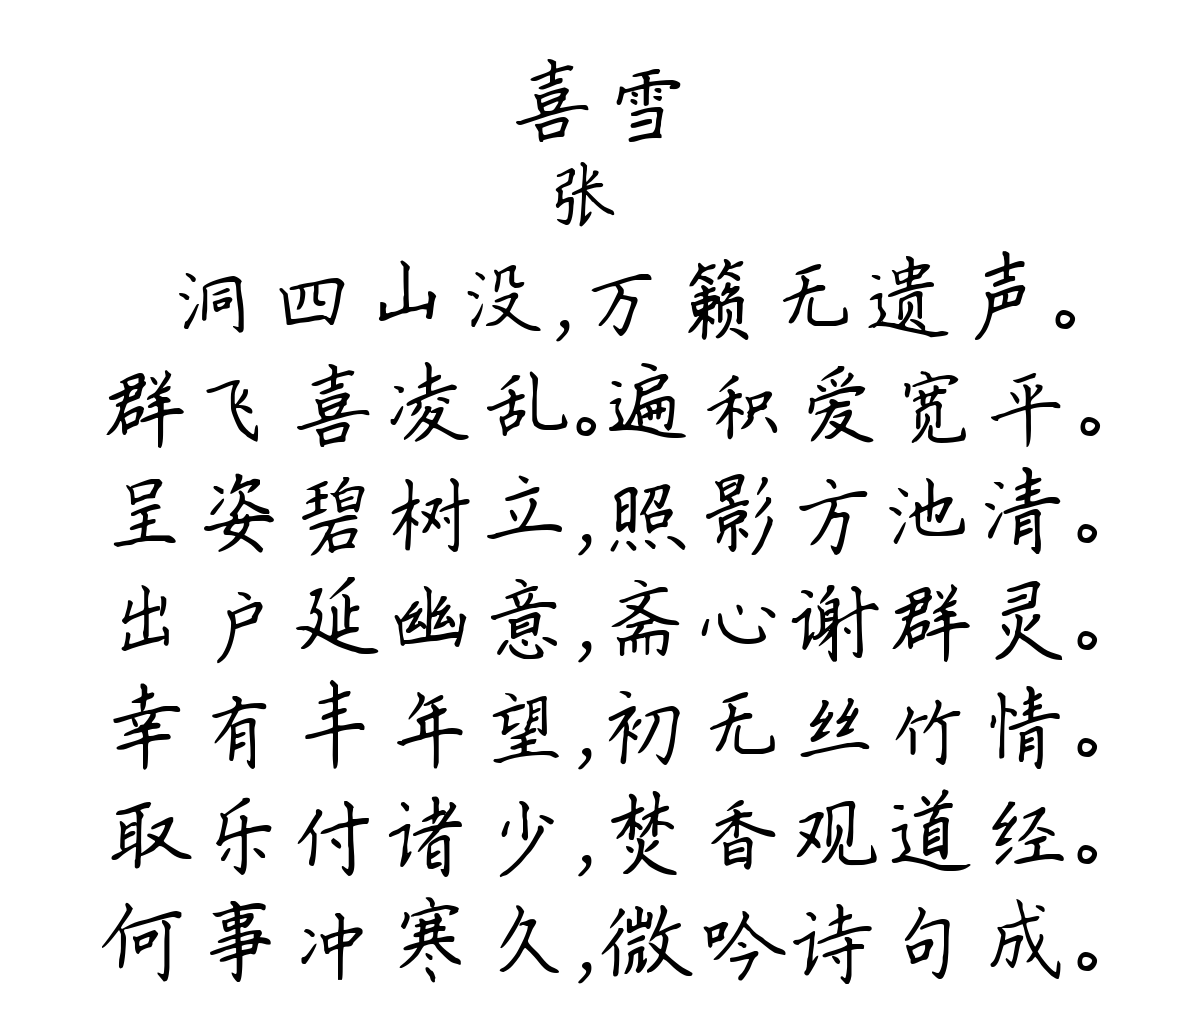 喜雪
张
洞四山没,万籁无遗声。
群飞喜凌乱。遍积爱宽平。
呈姿碧树立,照影方池清。
出户延幽意,斋心谢群灵。
幸有丰年望,初无丝竹情。
取乐付诸少,焚香观道经。
何事冲寒久,微吟诗句成。